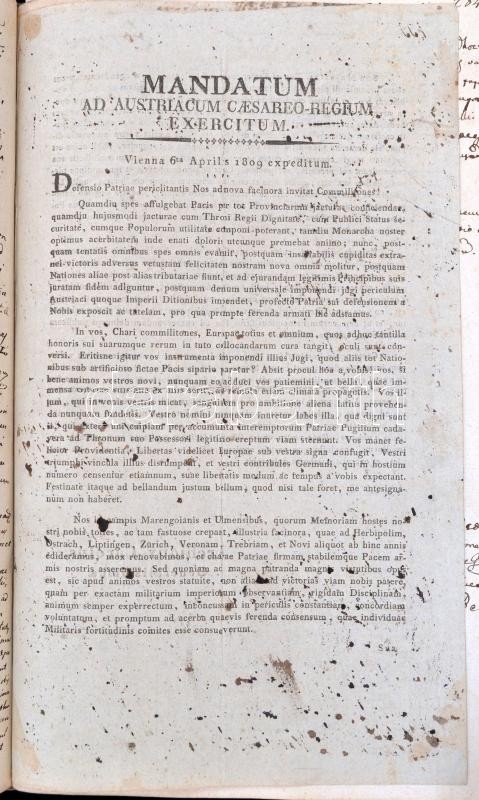 MANDATUM
AD AUSTRIACUM CÆSAREO-REGIUM
EXERCITUM.
Vienna 6ta Aprils 1809 expeditum.
Defensio Patriae periclitantis Nos adnova facinora invitat Commilitones!
Quamdiu spes affulgebat Pacis per tot Provinciarum jacturas conficiendae,
quamdiu hujusmodi jacturae cum Throni Regii Dignitate, cum Publici Status se-
curitate, cumque Populorum utilitate componi poterant, tamdiu Monarcha noster
optimus acerbitatem inde enati doloris utcunque premebat animo; nunc, post-
quam tentatis omnibus spes omnis evanuit, postquam insatiabilis cupiditas extra-
nei victoris adversus vetustam felicitatem nostram nova omnia molitur, postquam
Nationes aliae post alias tributariae fiunt, et ad ejurandam legitimis Principibus suis
juratam fidem adiguntur, postquam denum universale imponendi jugi periculum
Austriaci quoque Imperii Ditionibus impendet, profecto Patria sui defensionem a
Nobis exposcit ac tutelam, pro qua prompte ferenda armati hic adstamus.
In vos, Chari commilitones, Europae totius et omnium, quos adhuc tantilla
honoris sui suarumque rerum in tuto collocandarum cura tangit, oculi sunt con-
versi. Eritisne igitur vos instrumenta imponendi illius Jugi, quod aliis tot Natio-
nibus sub artificioso fictae Pacis sipario paratur? Absit procul hoc a vobis! vos, si
bene animos vestros novi, nunquam eo adduci vos patiemini, ut bellum quae im-
mensa
jum, qui in oculis vestris micat, sanguinea pro ambitione aliena latius provehen-
da nunquam funditis. Vestro nomini nunquam inuretur labes illa, qua digni sunt
ii, qui extera
vera ad Thronum suo Possessori legitimo ereptum viam sternunt. Vos manet fe-
licior Providentia; Libertas videlicet Europae sub vestra signa confugit, Vestri
triumphi vincula illius disrumpent, et vestri contribules Germani, qui in hostium
numero censentur etiamnum, suae libertatis modum ac tempus a vobis expectant.
Festinate itaque ad bellandum justum bellum, quod nisi tale foret, me antesigna-
num non haberet.
Nos in campis Marengoianis et Ulmensibus, quorum Memoriam hostes no-
stri nobis toties, ac tam fastuose crepant, illustria facinora, quae ad Herbipolim,
Ostrach, Liptingen, Zürich, Veronam, Trebriam, et Novi aliquot ab hinc annis
edideramus, mox renovabimus, et charae Patriae firmam stabilemque Pacem ar-
mis nostris asseremus. Sed quoniam ac magna patranda magnis virtutibus opus
est, sic apud animos vestros statuite, non aliam ad victorias viam nobis patere,
quam per exactam militarium imperiorum observantiam, rigidam Disciplinam,
animum semper experrectum, inconcussam in periculis constantiam, concordiam
voluntatum, et promptum ad acerba quaevis ferenda consensum, quae individuae
Militaris fortitudinis comites esse consueverunt.
Sua